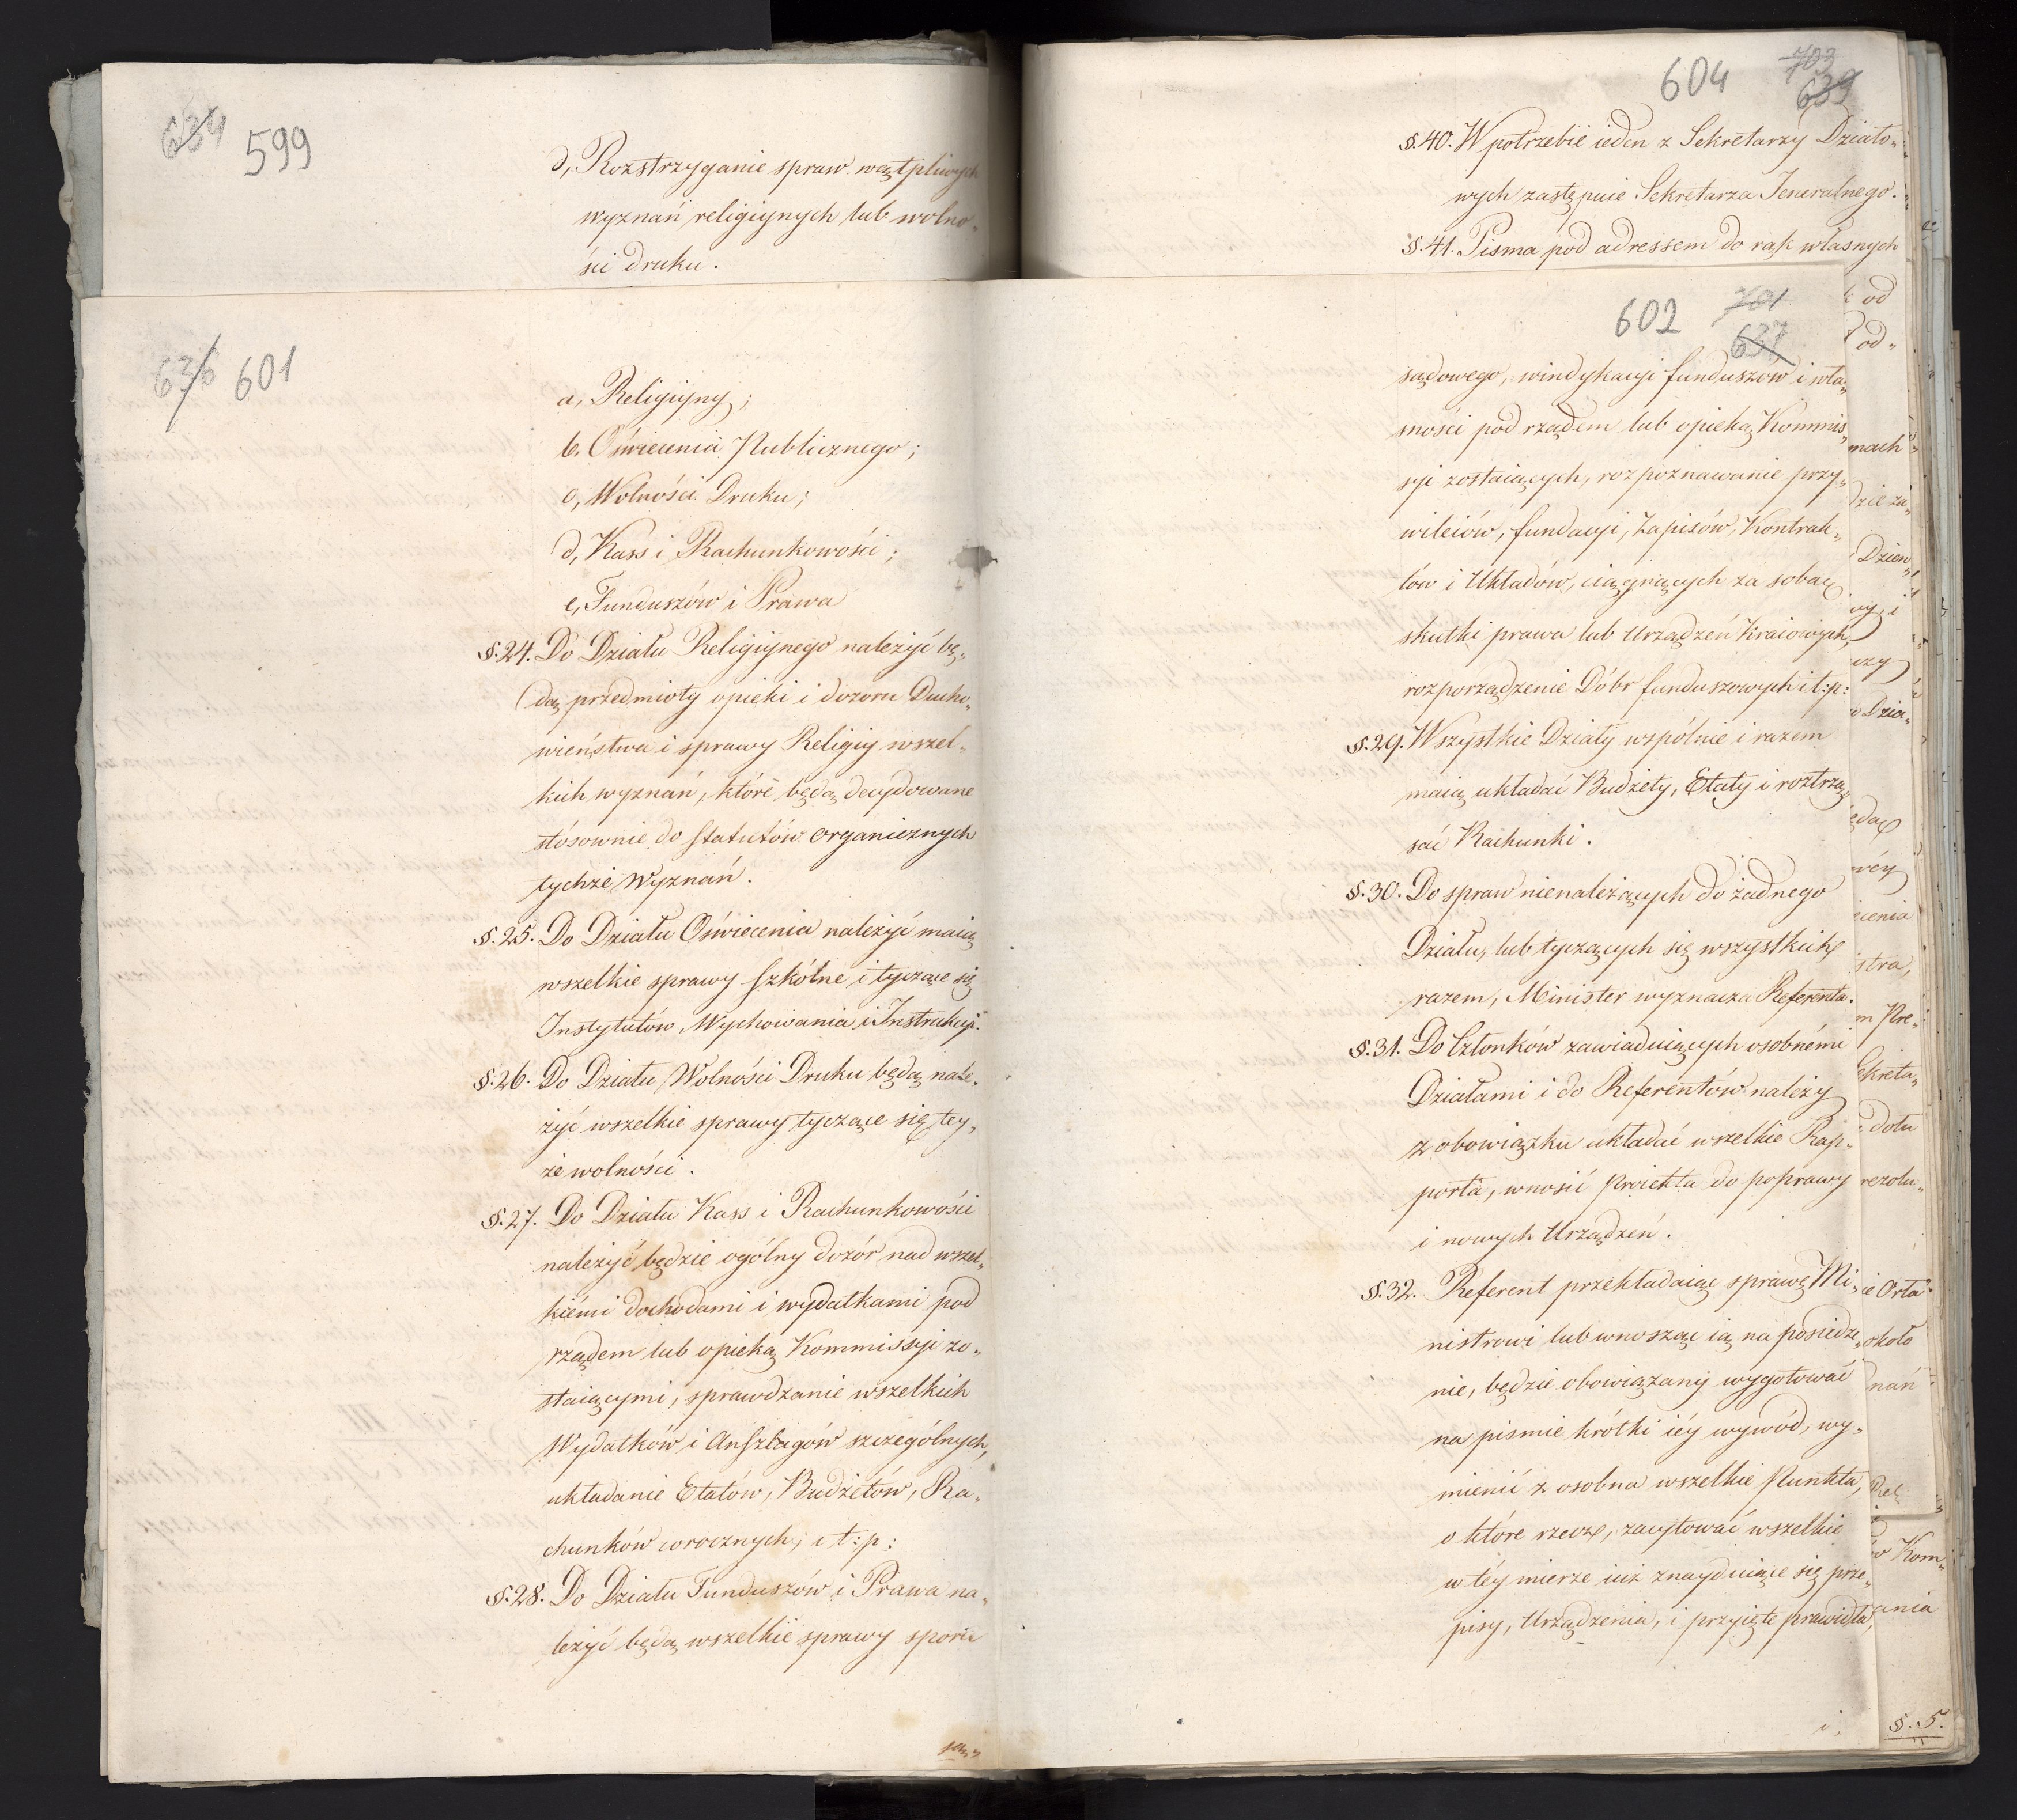 634 599
d, Rozstrzyganie spraw wątpliwych
wyznań religiynych lub wolno„
ści druku.
604 703
639
§.40. W potrzebie ieden z Sekretarzy Działo„
wych zastępuie Sekretarza Jeneralnego.
§.41. Pisma pod adressem do rąk własnych
636 601
a, Religiyny;
b, Oświecenia Publicznego;
c, Wolności Druku;
d, Kass i Rachunkowości;
e, Funduszów i Prawa
§.24. Do Działu Religiynego należyć bę„
dą przedmioty opieki i dozoru Ducho„
wieństwa i sprawy Religiy wszel„
kich wyznań, które będą decydowane
stósownie do Statutów organicznych
tychże Wyznań.
§.25. Do Działu Oświecenia należyć maią
wszelkie sprawy szkólne i tyczące się
Instytutów, Wychowania i Instrukcyi.
§.26. Do Działu Wolności Druku będą nale„
żyć wszelkie sprawy tyczące się tey„
że wolności.
§.27. Do Działu Kass i Rachunkowości
należyć będzie ogólny dozór nad wszel„
kiémi dochodami i wydatkami pod
rządem lub opieką Kommissyi zo„
staiącymi, sprawdzanie wszelkich
Wydatków i Anszlagów szczególnych,
układanie Etatów, Budżetów, Ra„
chunków corocznych, i t: p:
§.28. Do Działu Funduszów i Prawa na„
leżyć będą wszelkie sprawy sporu
są„
602 701
637
sądowego, windykacyi funduszów i wła„
sności pod rządem lub opieką Kommis„
syi zostaiących, rozpoznawanie przy„
wileiów, fundacyi, Zapisów, Kontrak„
tów i Układów, ciągnących za sobą
skutki prawa lub Urządzeń Kraiowych,
rozporządzenie Dóbr funduszowych i t: p:
§.29. Wszystkie Działy wspólnie i razem
maią układać Budżety, Etaty i roztrzą„
sać Rachunki.
§.30. Do spraw nienależących do żadnego
Działu, lub tyczących się wszystkich
razem, Minister wyznacza Referenta.
§.31. Do Członków zawiaduiących osobnémi
Działami i do Referentów należy
z obowiązku układać wszelkie Rap„
porta, wnosić proiekta do poprawy
i nowych Urządzeń.
§.32. Referent przekładaiąc sprawę Mi„
nistrowi lub wnosząc ią na posiedze„
nie, będzie obowiązany wygotować
na pismie krótki iéy wywód, wy„
mienić z osobna wszelkie Punkta,
o które rzecz, zacytować wszelkie
w téy mierze iuż znayduiące się prze„
pisy, Urządzenia, i przyięte prawidła,
i,
od
od„
mach
dzie za„
Dzien„
i
czy
Dzia„
będą
wéy
ecenia
istra,
m Pre„
ekreta„
dołu
rezolu„
ie Orła
około
nań
Kom„
ania
§.5.